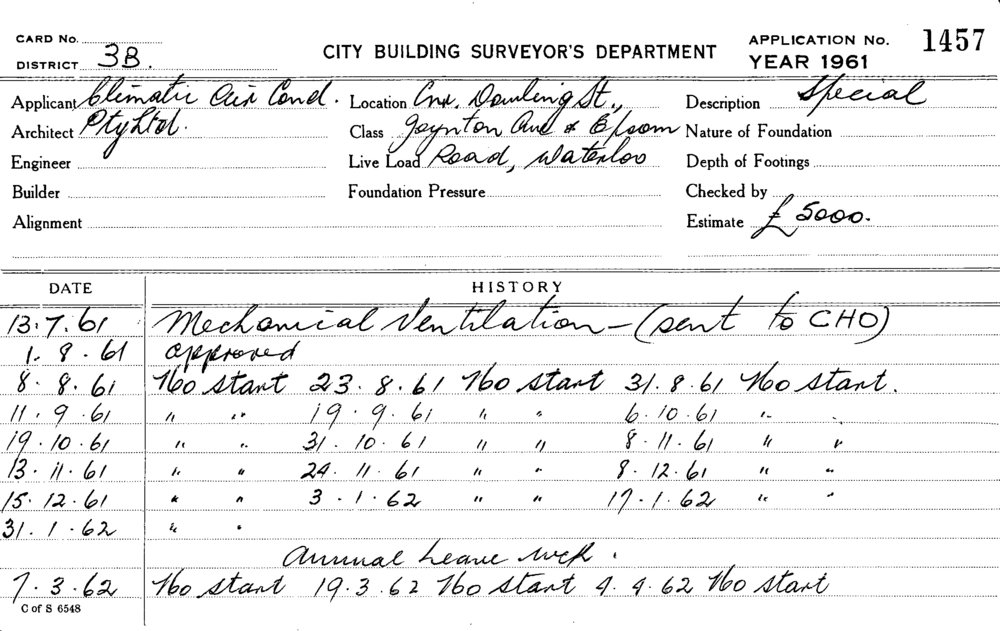 CARD No.
DISTRICT 3B.
CITY BUILDING SURVEYOR'S DEPARTMENT
APPLICATION No. 1457
YEAR 1961
Applicant Climatic Air Cond. Location Cnr. Dowling St., Description Special
Architect Pty Ltd. Class Joynton Ave & Epsom Nature of Foundation
Engineer Live Load Road, Waterloo Depth of Footings
Builder Foundation Pressure Checked by
Alignment Estimate £ 5000.
DATE HISTORY
13.7.61 Mechanical Ventilation - (sent to CHO)
1.8.61 approved
8.8.61 No start 23.8.61 No start 31.8.61 No start.
11.9.61 " " 19.9.61 " " 6.10.61 " "
19.10.61 " " 31.10.61 " " 8.11.61 " "
13.11.61 " " 24.11.61 " " 8.12.61 " "
15.12.61 " " 3.1.62 " " 17.1.62 " "
31.1.62 " "
Annual Leave
7.3.62 No start 19.3.62 No start 4.4.62 No start
C of S 6548